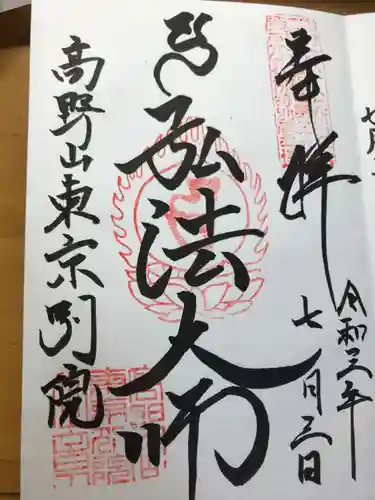 奉拝
令和三年
七月三日
弘法大師
高野山東京別院
七月